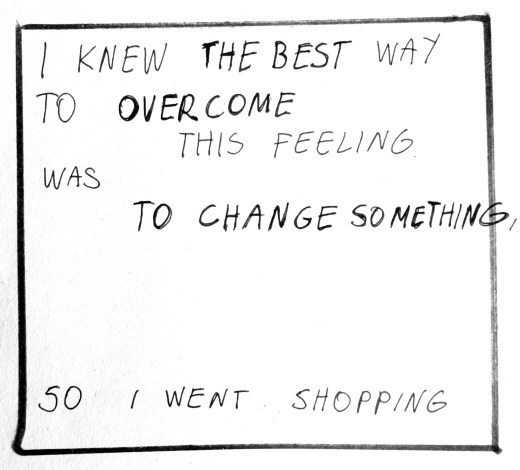 I KNEW THE BEST WAY
TO OVERCOME
THIS FEELING.
WAS
TO CHANGE SOMETHING,
SO I WENT SHOPPING